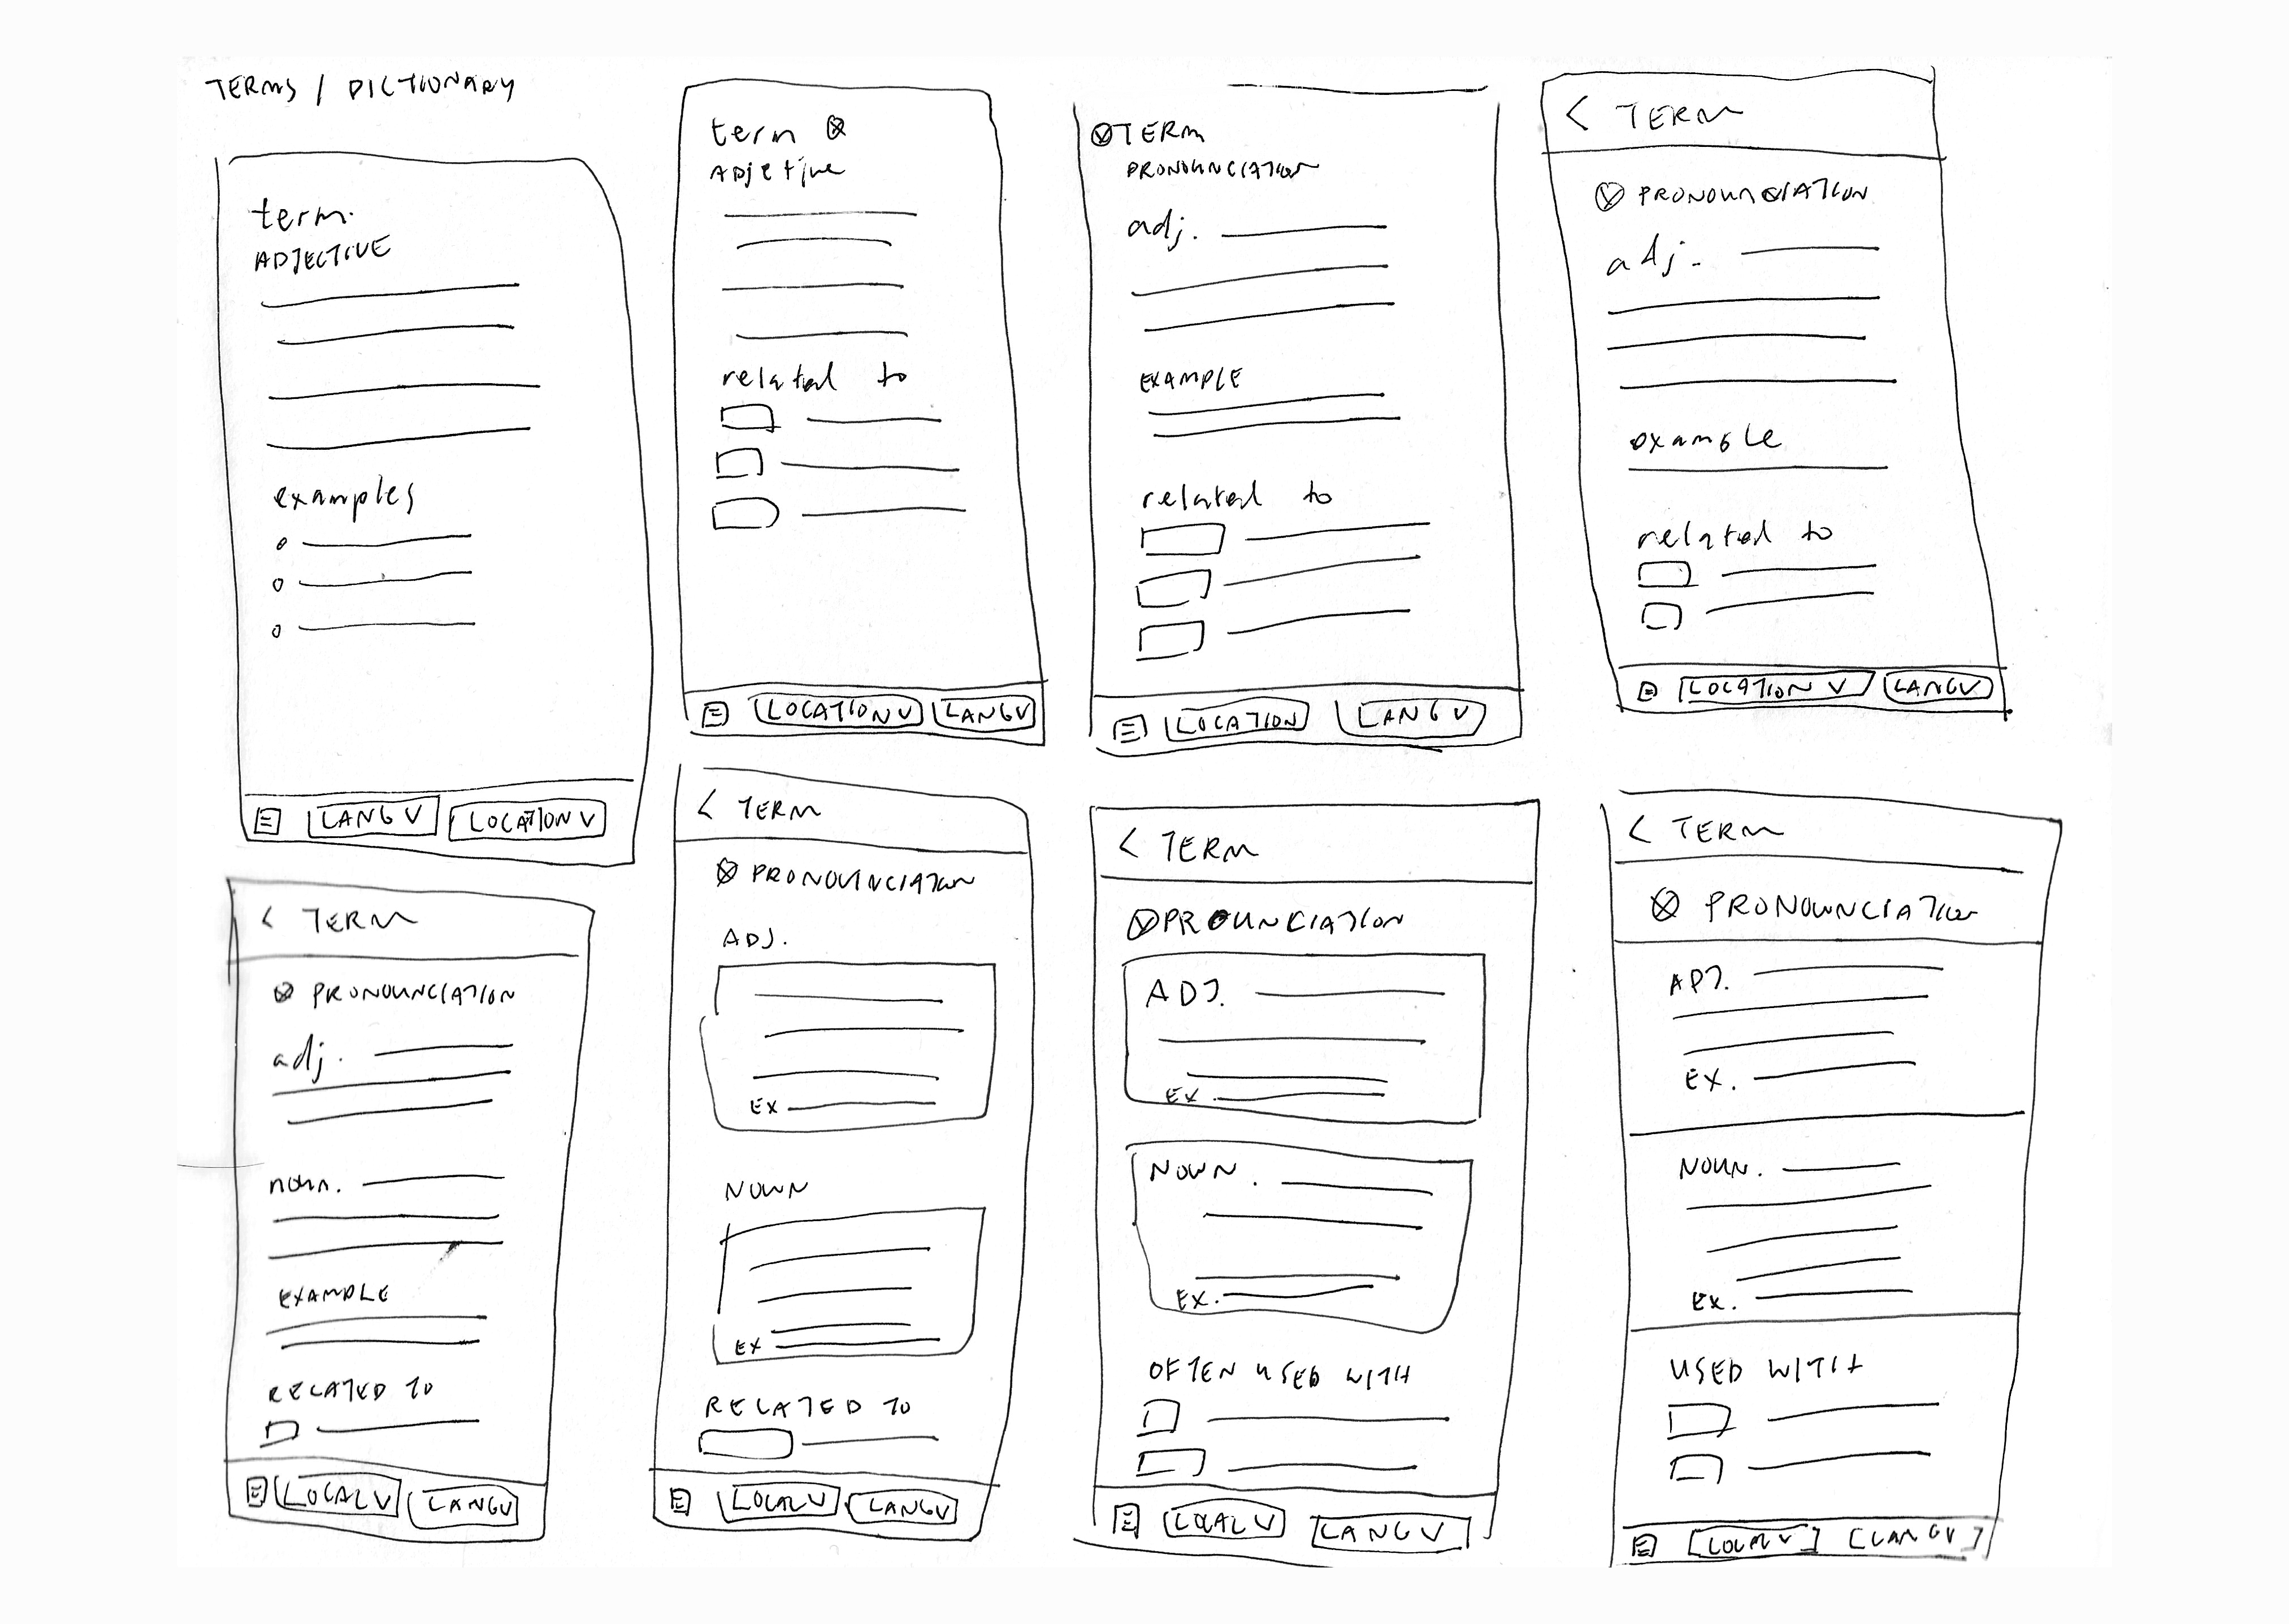 TERMS / DICTIONARY
term.
ADJECTIVE
examples
LANG V
LOCATION V
term
ADJETIVE
related to
LOCATION V
LANG V
TERM
PRONOUNCIATION
adj.
EXAMPLE
related to
LOCATION
LANG V
< TERM
PRONOUNCIATION
adj.
example
related to
LOCATION V
LANG V
< TERM
PRONOUNCIATION
adj.
noun.
EXAMPLE
RELATED TO
LOCAL V
LANG V
< TERM
PRONOUNCIATION
ADJ.
EX
NOUN
EX
RELATED TO
LOCAL V
LANG V
< TERM
PROUNCIATION
ADJ.
EX.
NOUN.
EX.
OFTEN USED WITH
LOCAL V
LANG V
< TERM
PRONOUNCIATION
ADJ.
EX.
NOUN.
EX.
USED WITH
LOCAL V
LANG V